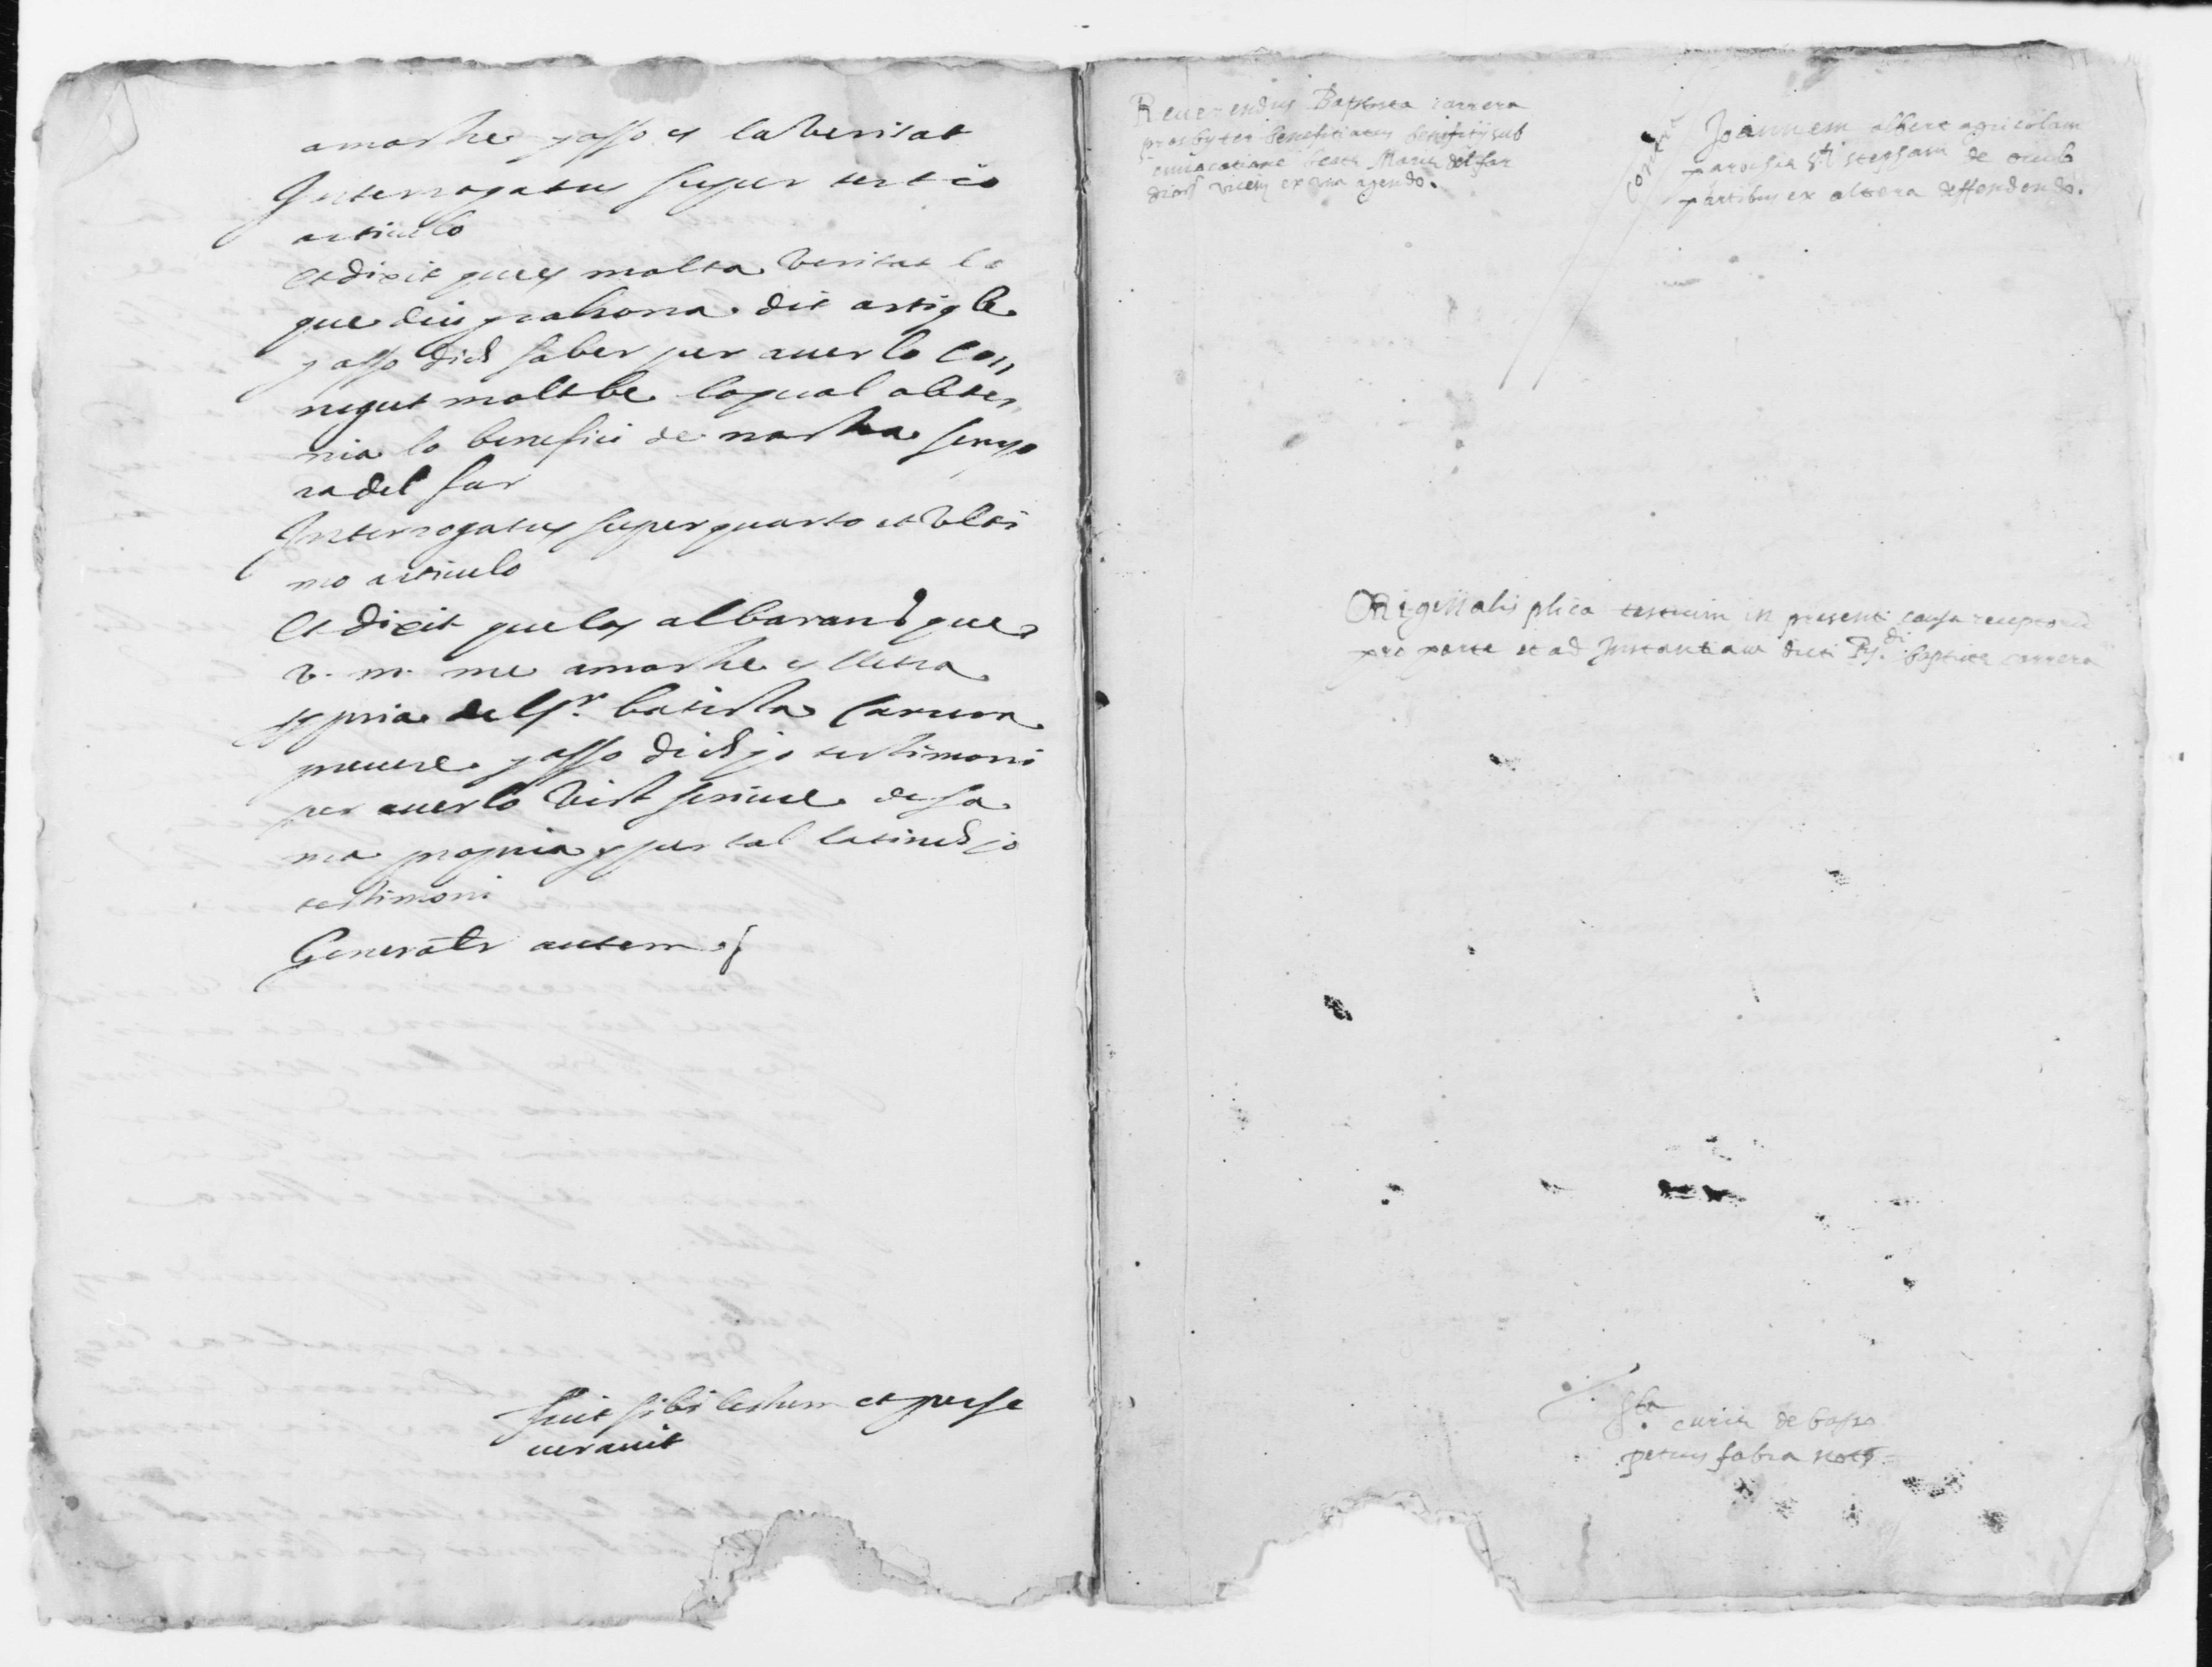 amostre y asso es la veritat
Interrogatus super tertio
articulo
Et dixit que es molta veritat lo
que diu y rahona dit artigle
y asso dich saber per averlo co„
negut molt be lo qual obte„
nia lo benefici de nostra seny„
ra del far
Interrogatus super quarto et ulti
mo articulo
Et dixit que los albarans que
v. m. me amostre es lletra
propria del Sr. batista Carrera
prevere y asso dich jo testimoni
per averlo vist scriure de sa
ma propria y per tal la tinch jo
testimoni
Generalr autem
fuit sibi lectum et perse
veravit
Reverendus Baptista carrera
presbyter benefitiatus benefitii sub
invocatione beate Marie del far
dioss vicen ex una agendo.
contra
Joannem albert agricolam
parochia Sti stephani de
partibus ex altera deffendendo.
Origginalis plica testium in presenti causa receptorum
pro parte et ad Instantiam dicti Rdi. baptiste carrera
Sta curie de basso
petrus fabra nots